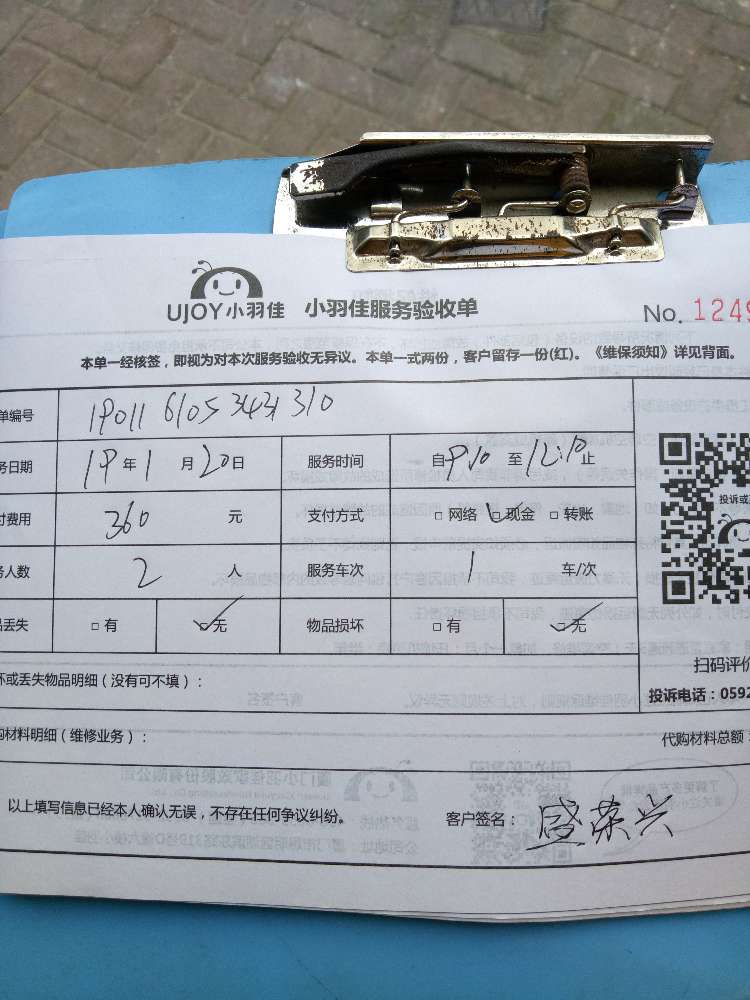 UJOY小羽佳 小羽佳服务验收单 No. 1249
本单一经核签，即视为对本次服务验收无异议。本单一式两份，客户留存一份(红)。《维保须知》详见背面。
单编号
务日期 19年1月20日 服务时间 自9:10至12:10止
付费用 360 元 支付方式 □网络 ☑现金 □转账
务人数 2 人 服务车次 1 车/次
品丢失 □有 ☑无 物品损坏 □有 ☑无
投诉或
扫码评价
坏或丢失物品明细（没有可不填）：
投诉电话：0592
购材料明细（维修业务）： 代购材料总额：
以上填写信息已经本人确认无误，不存在任何争议纠纷。 客户签名：盛荣兴